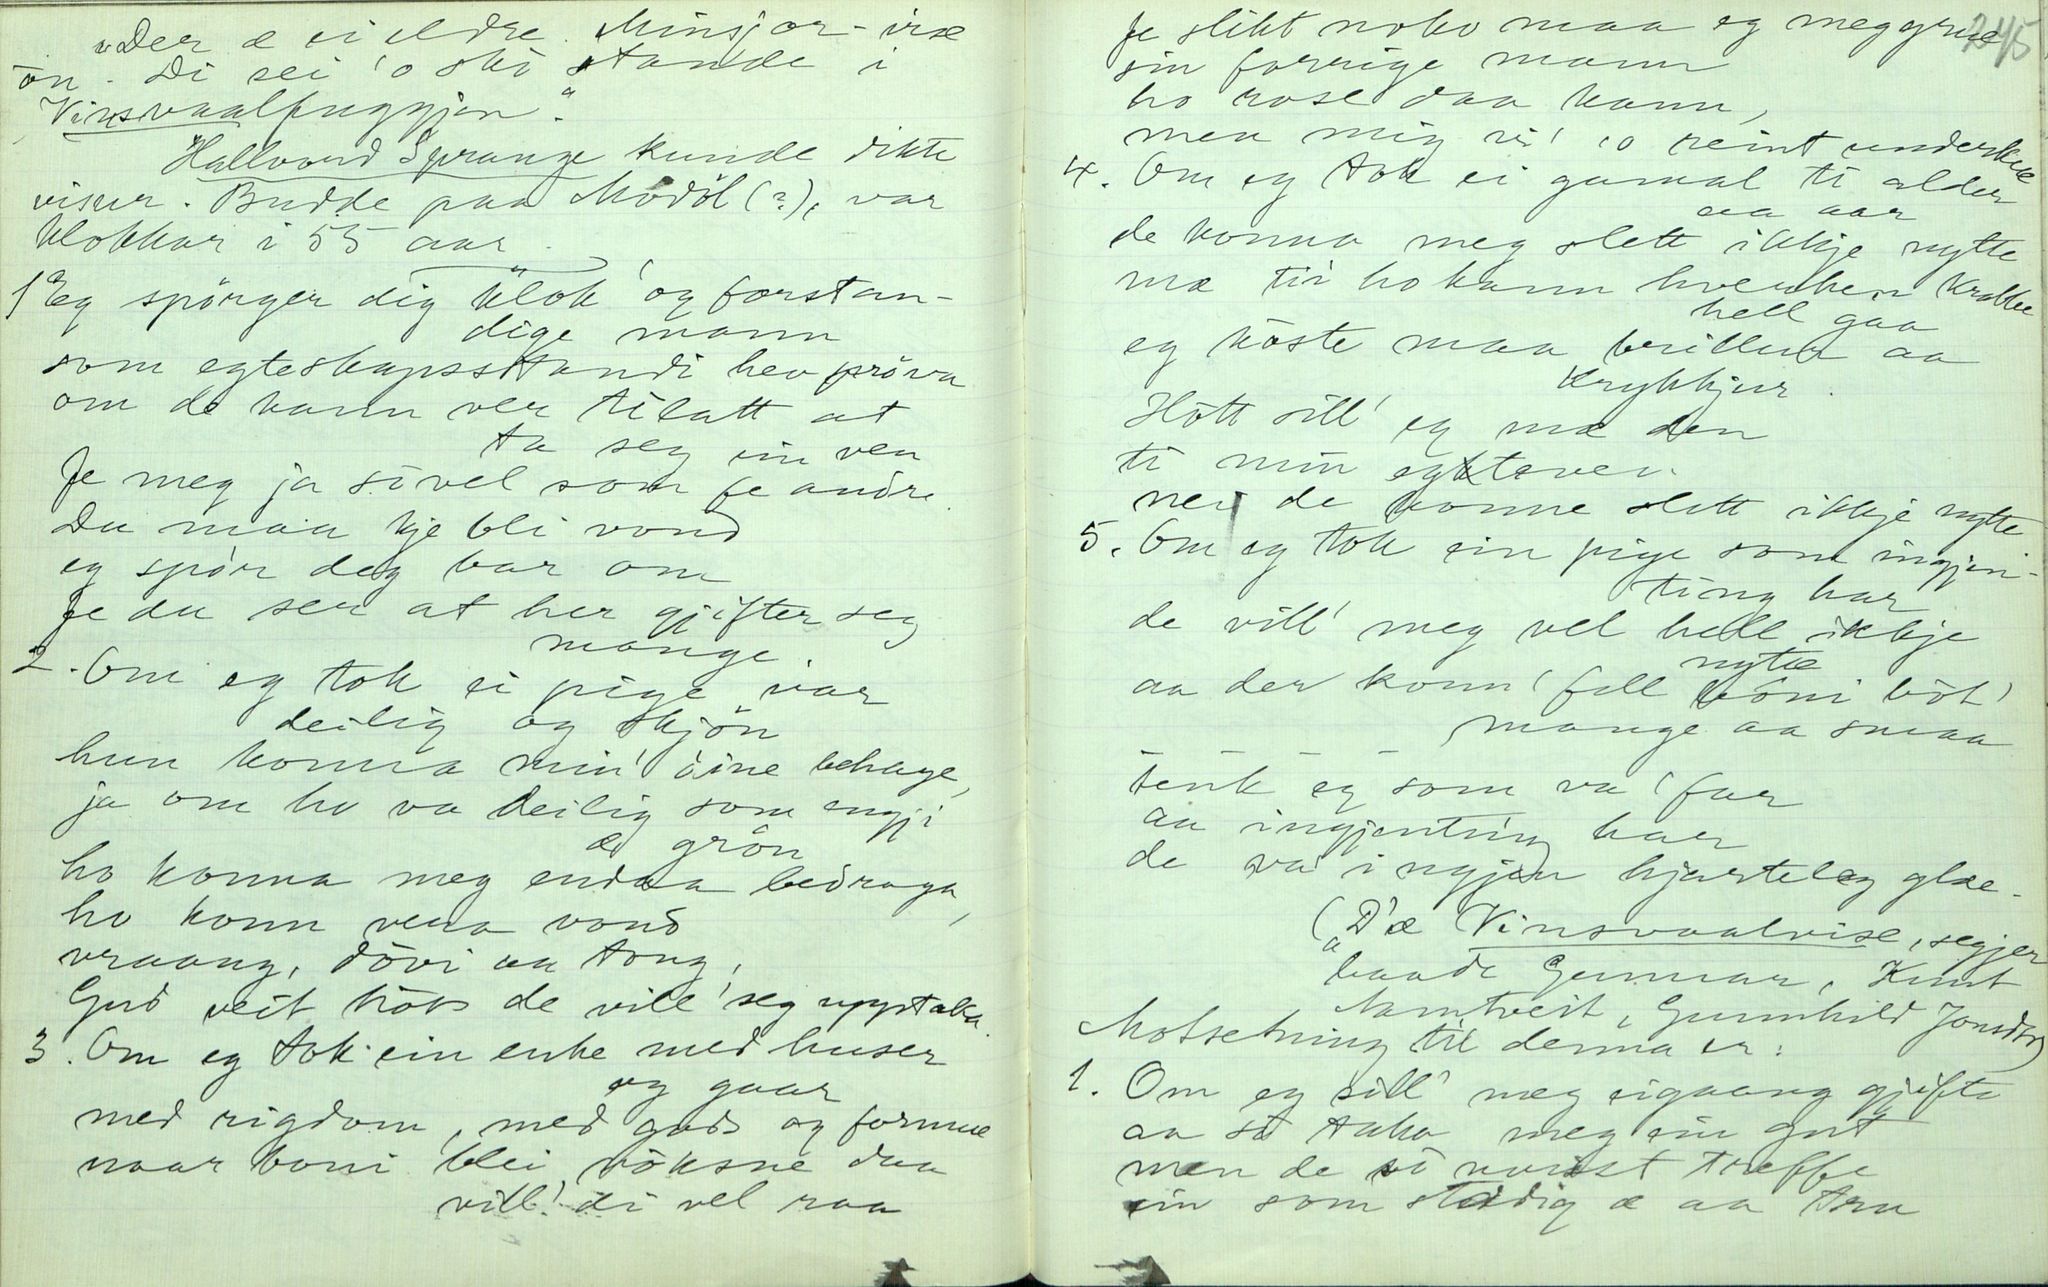 "Der æ ei eldre Minsjor-vise
ón. Di sei 'o ski stande i
Vinsvaalfuggjen".
Hallvord Sprange kunde dikte
visur. Budde paa Modöl (?), var
klokkar i 55 aar.
1 Eg spörger dig klok' og forstan-
dige mann
som egteskapsstandi hev pröva
om de kann ver tilatt at
ta seg ein ven
Fe meg ja sóvel som fe andre.
Du maa kje bli vond
eg spör deg bar om
Fe du ser at her gjifter seg
mange.
2. Om eg tok ei pige var
deilig og skjön
hun konna min' öine behage,
ja om ho va deilig som engji
æ grön
ho konna meg endaa bedraga,
ho konn vera vond
vraang, dövi aa tong,
Gud veit hoss de vill' seg upptaka.
3. Om eg tok ein enke med huser
og gaar
med rigdom, med guds og formue
naar boni blei vöksne daa
vill' di vel raa
245
Fe slikt noko maa eg meg grue
sin forrige mann
ho rose daa kann,
men mig vi' 'o reint underkue
4. Om eg tok ei gamal ti alder
aa aar
de konna meg slett ikkje nytte
mæ tii ho kann hverken krabbe
hell gaa
eg köste maa brillur aa
krykkjur.
Hött sill' eg mæ den
ti min egteven.
nei de konne slett ikkje nytte
5. Om eg tok ein pige som ingjen-
ting har
de vill' meg vel hell ikkje
nytte
aa der konn' fall bóni böt'
mange aa smaa
– – – –
tenk eg som va' far
aa ingjenting har
de va' ingjen hjarteleg glæ-
(D'æ Vinsvaalvise, segjer
baade Gunnar, Knut
Namtveit, Gunnhild Jonsdtr)
Motsetning til denna er:
1. Om eg sill' meg eigaang gjifte
aa só taka meg ein gut
men de só uvisst treffe
ein som stødig æ aa tru